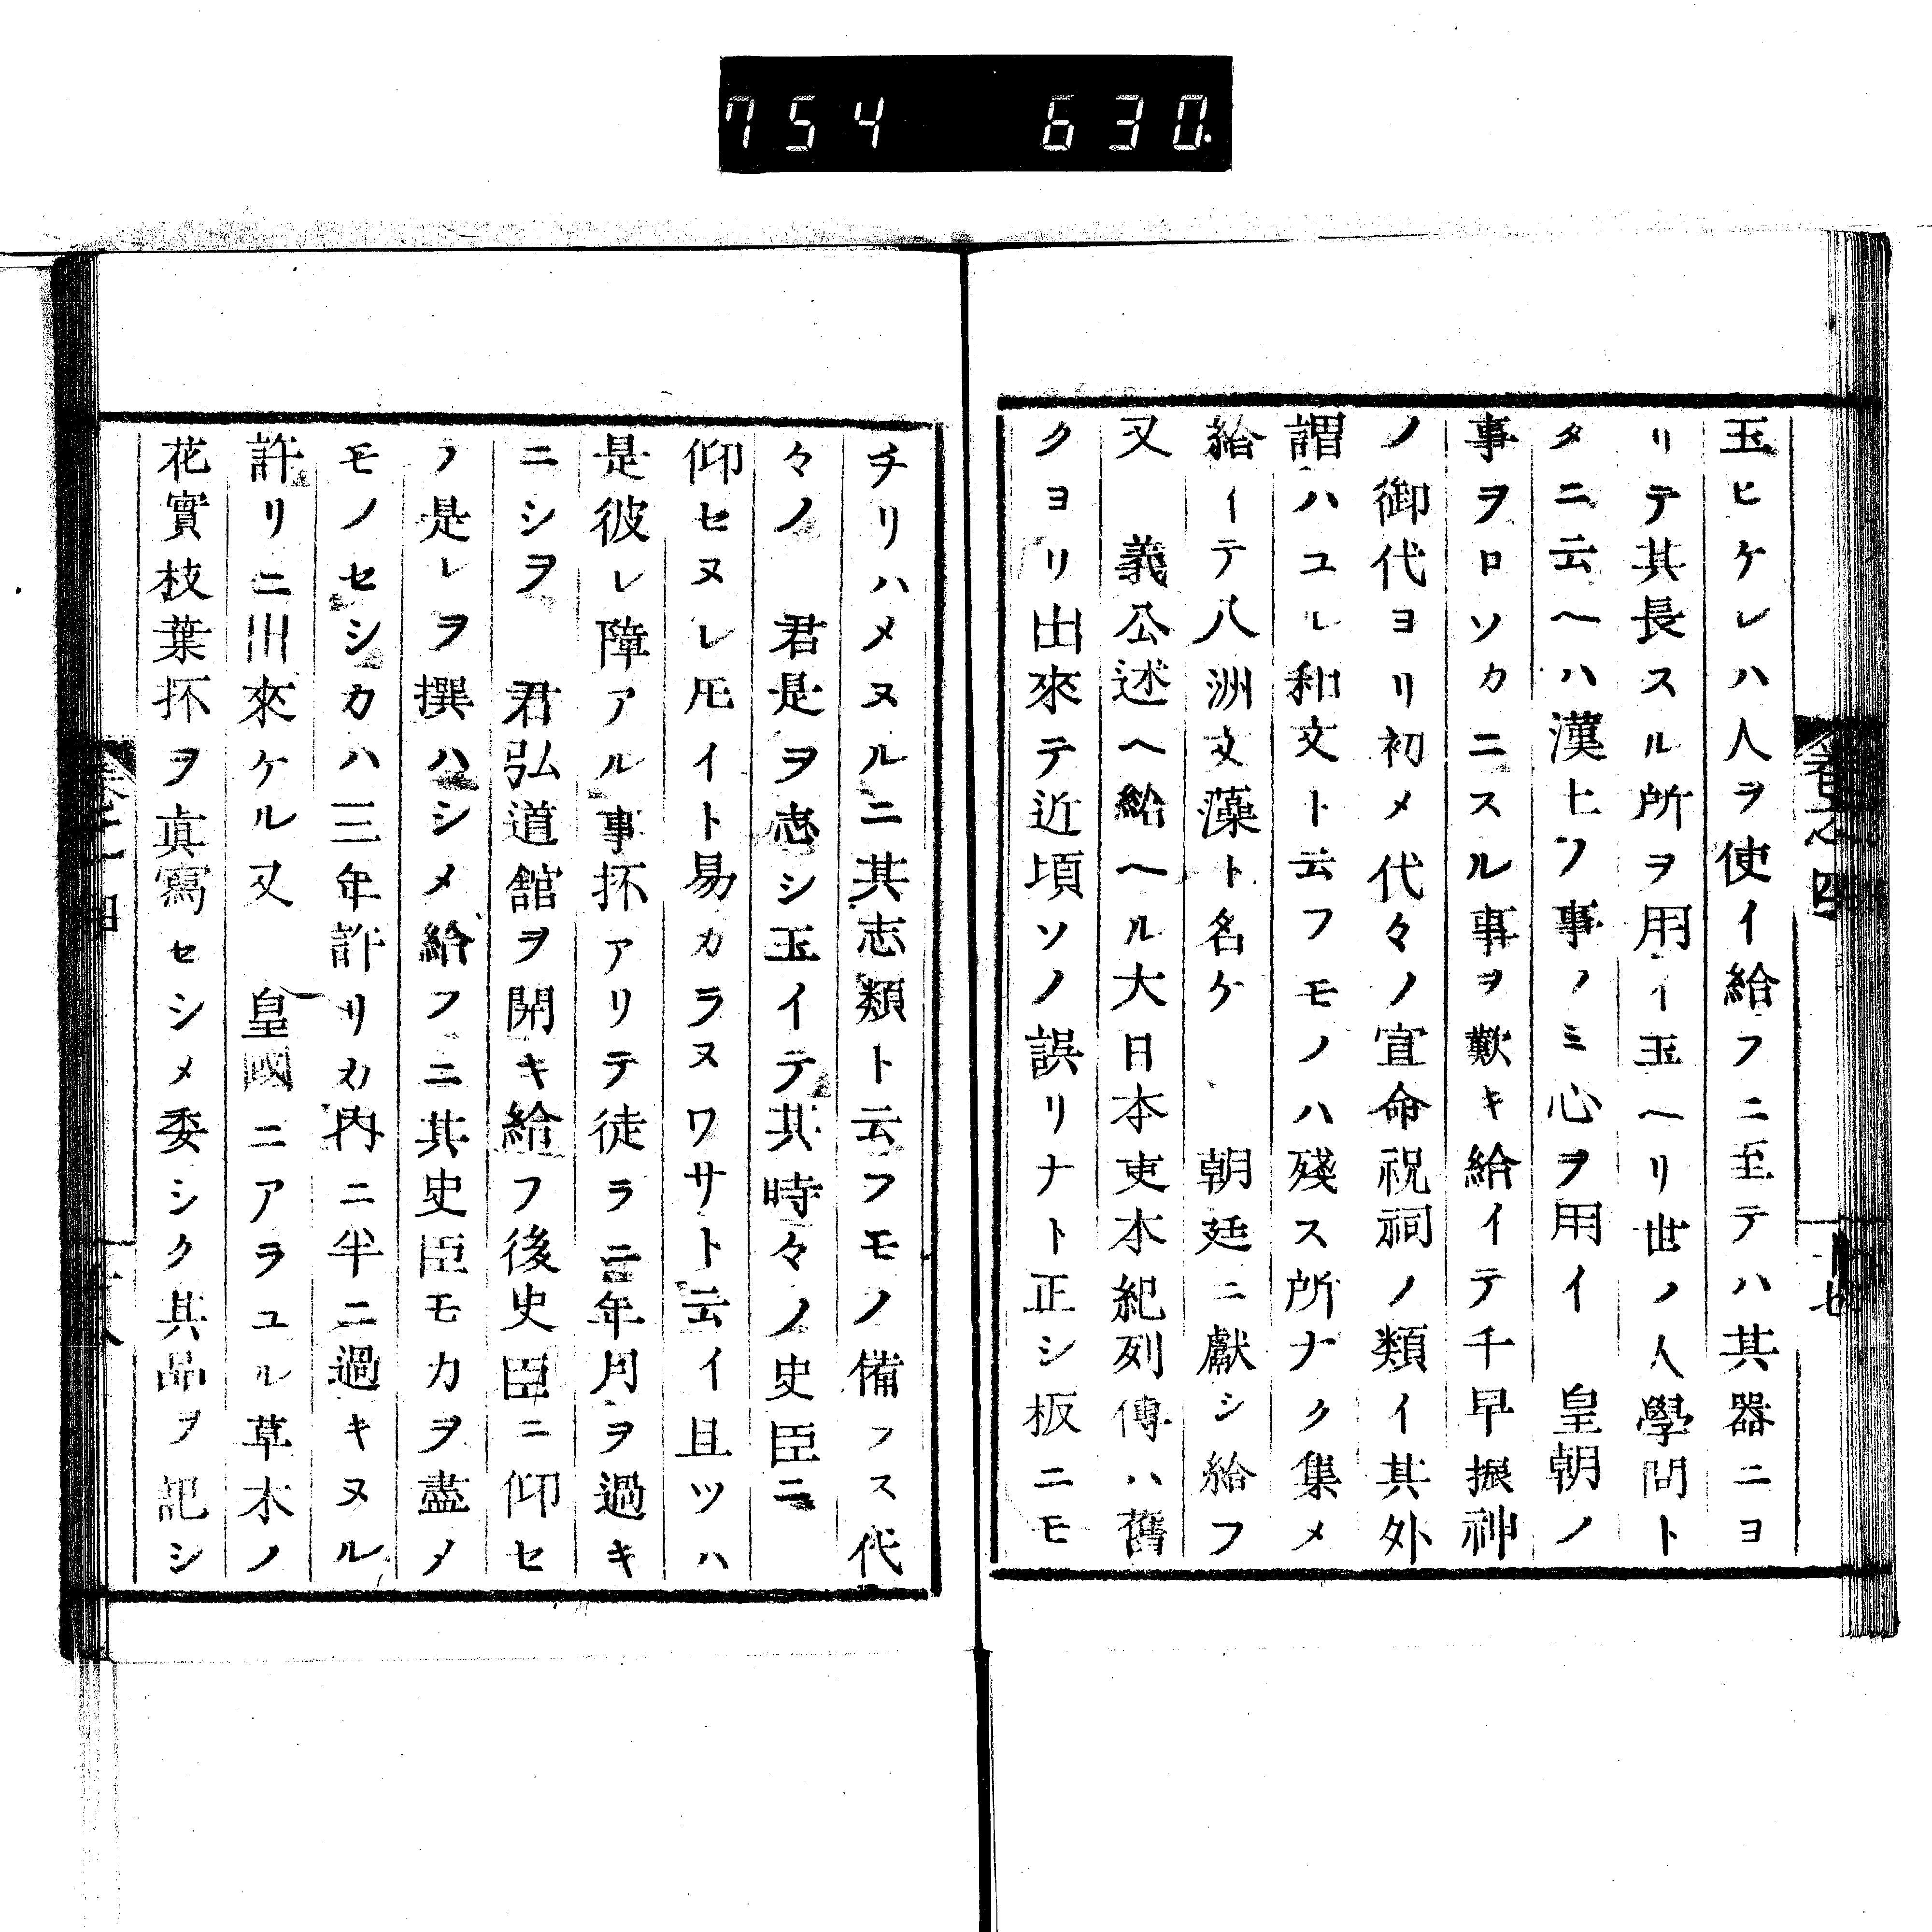 754 630.
玉ヒケレハ人ヲ使イ給フニ至テハ其器ニヨ
リテ其長スル所ヲ用イ玉ヘリ世ノ人學問ト
タニ云ヘハ漢土ノ事ノミ心ヲ用イ 皇朝ノ
事ヲロソカニスル事ヲ歎キ給イテ千早振神
ノ御代ヨリ初メ代々ノ宣命祝祠ノ類イ其外
謂ハユレ和文ト云フモノハ殘ス所ナク集メ
給イテ八洲文藻ト名ケ 朝廷ニ獻シ給フ
又 義公述ヘ給ヘル大日本史本紀列傳ハ舊
クヨリ出來テ近頃ソノ誤リナト正シ板ニモ
卷之四
十七
チリハメヌルニ其志類ト云フモノ備フス代
々ノ 君是ヲ志シ玉イテ其時々ノ史臣ニ
仰セヌレ𪜈イト易カラヌワサト云イ且ツハ
是彼レ障アル事抔アリテ徒ラニ年月ヲ過キ
ニシヲ 君弘道館ヲ開キ給フ後史臣ニ仰セ
ノ是レヲ撰ハシメ給フニ其史臣モカヲ盡メ
モノセシカハ三年許リカ内ニ半ニ過キヌル
許リニ川來ケル又 皇國ニアラユル草木ノ
花實枝葉抔ヲ眞寫セシメ委シク其品ヲ記シ